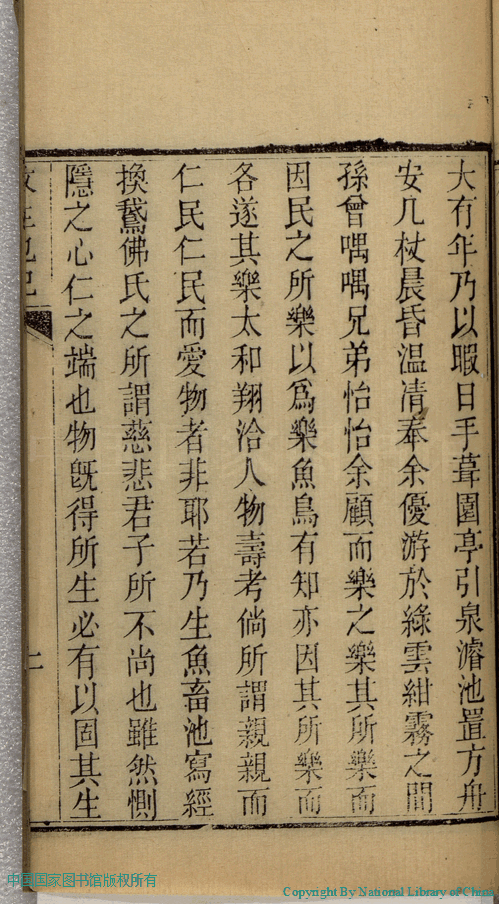 大有年乃以暇日手葺園亭引泉濬池置方舟
安几杖晨昏温清奉余優游於綠雲紺霧之間
孫曾喁喁兄弟怡怡余顧而樂之樂其所樂而
因民之所樂以爲樂魚鳥有知亦因其所樂而
各遂其樂太和翔洽人物壽考倘所謂親親而
仁民仁民而愛物者非耶若乃生魚畜池寫經
換鵞佛氏之所謂慈悲君子所不尚也雖然惻
隱之心仁之端也物旣得所生必有以固其生
中国国家图书馆版权所有
Copyright By National Library of China